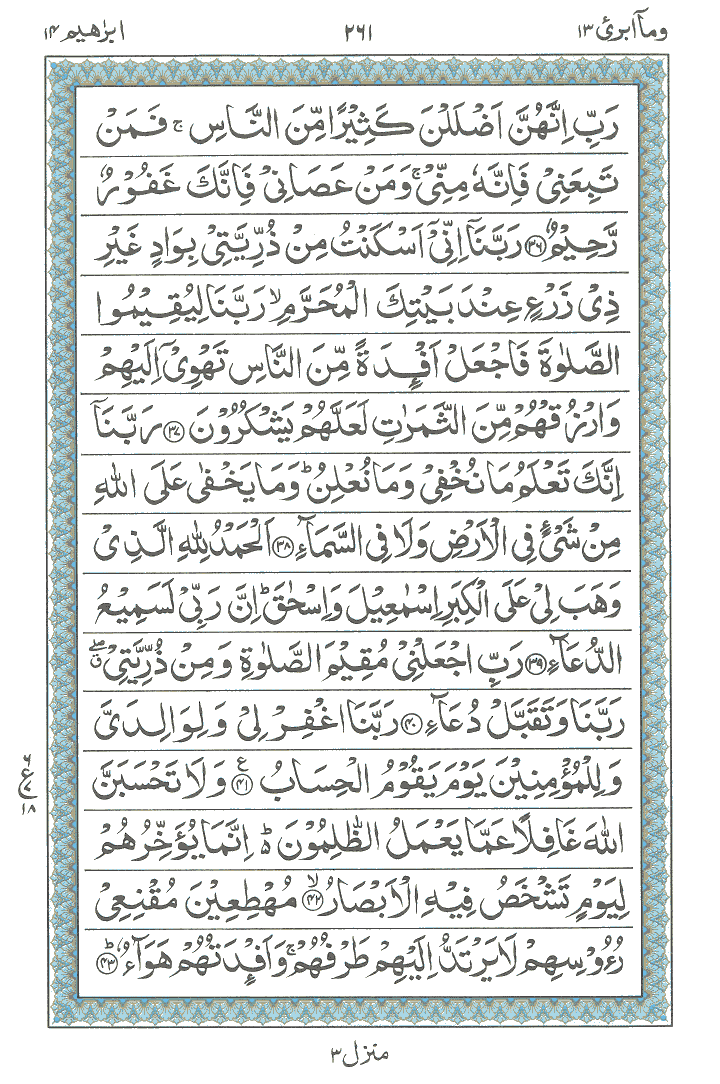 وماۤابرئ ١٣ ٢٦١ ابرٰهيم ١٤
رَبِّ اِنَّهُنَّ اَضْلَلْنَ كَثِيْرًا مِّنَ النَّاسِ ۚ فَمَنْ
تَبِعَنِىْ فَاِنَّهٗ مِنِّىْ ۚ وَمَنْ عَصَانِىْ فَاِنَّكَ غَفُوْرٌ
رَّحِيْمٌ ﴿٣٦﴾ رَبَّنَاۤ اِنِّىْۤ اَسْكَنْتُ مِنْ ذُرِّيَّتِىْ بِوَادٍ غَيْرِ
ذِىْ زَرْعٍ عِنْدَ بَيْتِكَ الْمُحَرَّمِ ۙ رَبَّنَا لِيُقِيْمُوا
الصَّلٰوةَ فَاجْعَلْ اَفْئِدَةً مِّنَ النَّاسِ تَهْوِىْۤ اِلَيْهِمْ
وَارْزُقْهُمْ مِّنَ الثَّمَرٰتِ لَعَلَّهُمْ يَشْكُرُوْنَ ﴿٣٧﴾ رَبَّنَاۤ
اِنَّكَ تَعْلَمُ مَا نُخْفِىْ وَمَا نُعْلِنُ ؕ وَمَا يَخْفٰى عَلَى اللّٰهِ
مِنْ شَىْءٍ فِى الْاَرْضِ وَلَا فِى السَّمَآءِ ﴿٣٨﴾ اَلْحَمْدُ لِلّٰهِ الَّذِىْ
وَهَبَ لِىْ عَلَى الْكِبَرِ اِسْمٰعِيْلَ وَاِسْحٰقَ ؕ اِنَّ رَبِّىْ لَسَمِيْعُ
الدُّعَآءِ ﴿٣٩﴾ رَبِّ اجْعَلْنِىْ مُقِيْمَ الصَّلٰوةِ وَمِنْ ذُرِّيَّتِىْ ۖۗ
رَبَّنَا وَتَقَبَّلْ دُعَآءِ ﴿٤٠﴾ رَبَّنَا اغْفِرْ لِىْ وَلِوَالِدَىَّ
وَلِلْمُؤْمِنِيْنَ يَوْمَ يَقُوْمُ الْحِسَابُ ﴿٤١﴾ ع وَلَا تَحْسَبَنَّ
٦ ع ٧ ١٨
اللّٰهَ غَافِلًا عَمَّا يَعْمَلُ الظّٰلِمُوْنَ ؕ اِنَّمَا يُؤَخِّرُهُمْ
لِيَوْمٍ تَشْخَصُ فِيْهِ الْاَبْصَارُ ۙ﴿٤٢﴾ مُهْطِعِيْنَ مُقْنِعِىْ
رُءُوْسِهِمْ لَا يَرْتَدُّ اِلَيْهِمْ طَرْفُهُمْ ۚ وَاَفْئِدَتُهُمْ هَوَآءٌ ؕ﴿٤٣﴾
منزل ٣